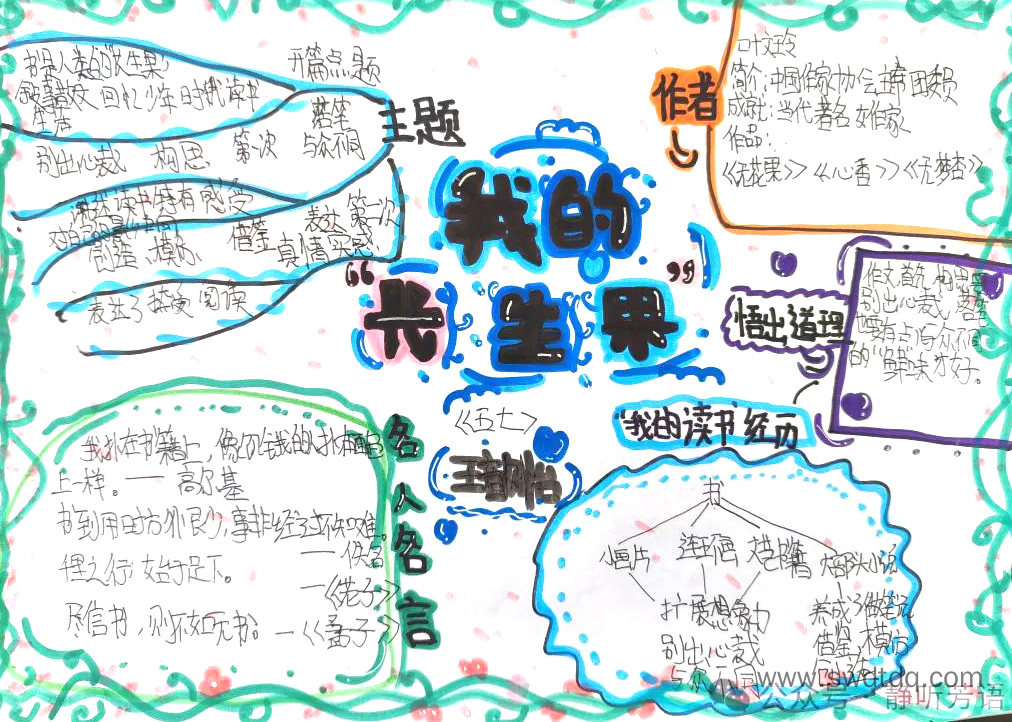 书是人类的"长生果"
开篇点题
回忆少年时代读书
生活
别出心裁 构思 第一次 落笔 与众不同
主题
读书特有感受
创造 模仿 借鉴 表达 第一次
真情实感
表达了 阅读
我的
"长生果"
《五七》
作者
叶文玲
简介:中国作家协会主席团委员
成就:当代著名女作家
作品:
《无花果》《心香》《无梦谷》
悟出道理
作文首先构思要
别出心裁,落笔
也要有点与众不同
的"鲜"味才好。
"我的读书"经历
书
小画片 连环画 文艺书籍 大部头小说
扩展想象力
别出心裁
与众不同
养成了做笔记
借鉴,模仿
名人名言
我扑在书籍上,像饥饿的人扑在面包
上一样。——高尔基
书到用时方恨少,事非经过不知难。
——佚名
千里之行,始于足下。
——《老子》
尽信书,则不如无书。——《孟子》
www.swdtdq.com
公众号·静听芳语